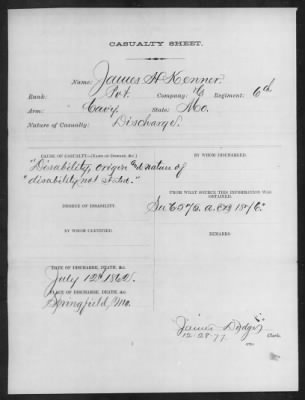 CASUALTY SHEET.
Name: James H Kenner
Rank: Pvt. Company: Regiment: 6th
Arm: Cavy. State: Mo.
Nature of Casualty: Discharge.
CAUSE OF CASUALTY—(NAME OF DISEASE, &C.)
"Disability, origin and nature of
"disability not stated."
DEGREE OF DISABILITY.
BY WHOM CERTIFIED.
DATE OF DISCHARGE, DEATH, &C.
July 12th 1862.
PLACE OF DISCHARGE, DEATH, &C.
Springfield, Mo.
BY WHOM DISCHARGED.
FROM WHAT SOURCE THIS INFORMATION WAS
OBTAINED.
1876."
REMARKS.
James
12-28-77. Clerk.